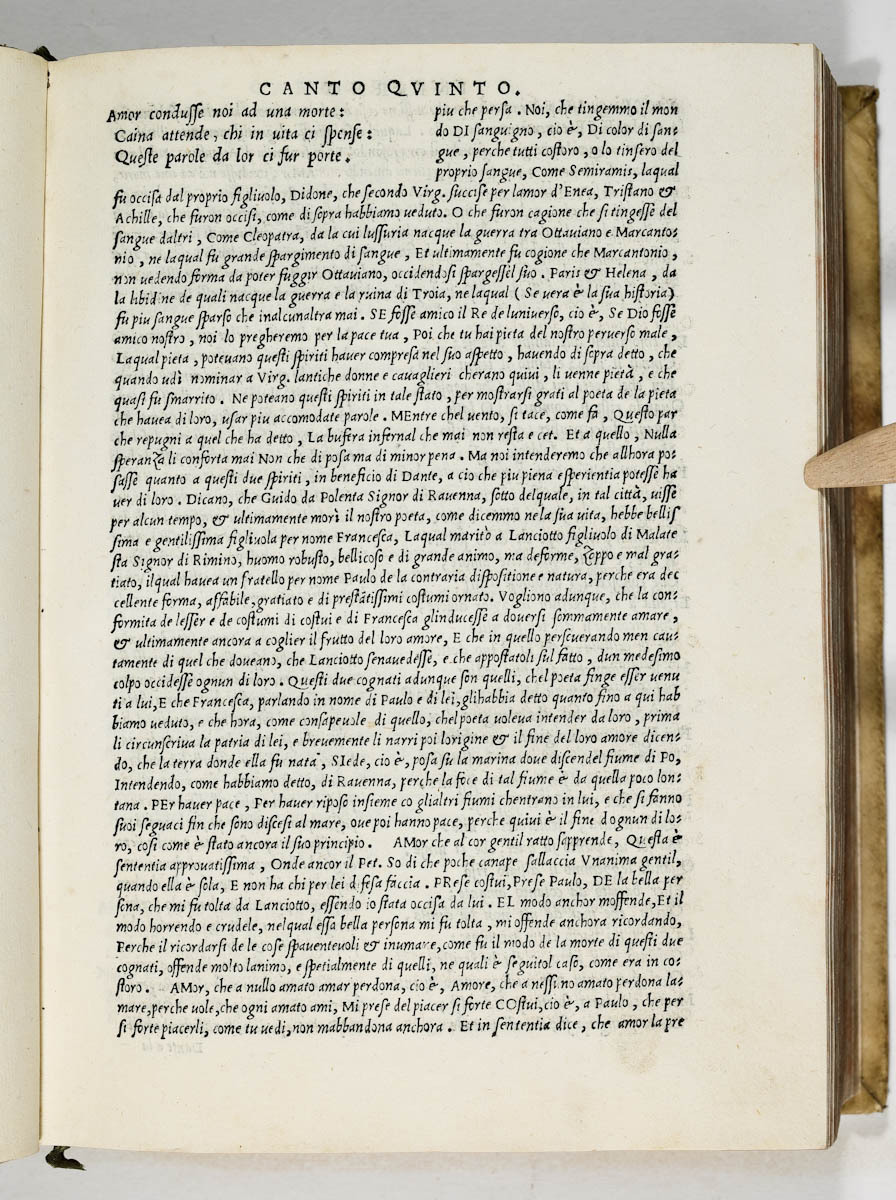 CANTO QVINTO.
Amor condusse noi ad una morte:
Caina attende, chi in uita ci spense:
Queste parole da lor ci fur porte.
piu che persa. Noi, che tingemmo il mon
do DI sanguigno, cio è, Di color di san-
gue, perche tutti costoro, o lo tinsero del
proprio sangue, Come Semiramis, laqual
fu occisa dal proprio figliuolo, Didone, che secondo Virg. succise per lamor d'Enea, Tristano &
Achille, che furon occisi, come di sopra habbiamo ueduto. O che furon cagione che si tingesse del
sangue daltri, Come Cleopatra, da la cui lussuria nacque la guerra tra Ottauiano e Marcanto-
nio, ne laqual fu grande spargimento di sangue, Et ultimamente fu cogione che Marcantonio,
non uedendo forma da poter fuggir Ottauiano, occidendosi spargessel suo. Paris & Helena, da
la libidine de quali nacque la guerra e la ruina di Troia, ne laqual (Se uera è la sua historia)
fu piu sangue sparso che inalcunaltra mai. SE fosse amico il Re de luniuerso, cio è, Se Dio fosse
amico nostro, noi lo pregheremo per la pace tua, Poi che tu hai pieta del nostro peruerso male,
Laqual pieta, poteuano questi spiriti hauer compresa nel suo aspetto, hauendo di sopra detto, che
quando udì nominar a Virg. lantiche donne e cauaglieri cherano quiui, li uenne pietà, e che
quasi fu smarrito. Ne poteano questi spiriti in tale stato, per mostrarsi grati al poeta de la pieta
che hauea di loro, usar piu accomodate parole. MEntre chel uento, si tace, come fa, Questo par
che repugni a quel che ha detto, La bufera infernal che mai non resta e cet. Et a quello, Nulla
speranza li conforta mai Non che di posa ma di minor pena. Ma noi intenderemo che allhora po-
sasse quanto a questi due spiriti, in beneficio di Dante, a cio che piu piena esperientia potesse ha
uer di loro. Dicano, che Guido da Polenta Signor di Rauenna, sotto delquale, in tal città, uisse
per alcun tempo, & ultimamente morì il nostro poeta, come dicemmo ne la sua uita, hebbe bellis
sima e gentilissima figliuola per nome Francesca, Laqual maritò a Lanciotto figliuolo di Malate
sta Signor di Rimino, huomo robusto, bellicoso e di grande animo, ma deforme, zoppo e mal gra-
tiato, ilqual hauea un fratello per nome Paulo de la contraria dispositione e natura, perche era dec
cellente forma, affabile, gratiato e di prestãtissimi costumi ornato. Vogliono adunque, che la con-
formita de lesser e de costumi di costui e di Francesca glinducesse a douersi sommamente amare,
& ultimamente ancora a coglier il frutto del loro amore, E che in quello perseuerando men cau-
tamente di quel che doueano, che Lanciotto senauedesse, e che appostatoli sul fatto, dun medesimo
colpo occidesse ognun di loro. Questi due cognati adunque son quelli, chel poeta finge esser uenu
ti a lui, E che Francesca, parlando in nome di Paulo e di lei, glihabbia detto quanto fino a qui hab
biamo ueduto, e che hora, come consapeuole di quello, chel poeta uoleua intender da loro, prima
li circunscriua la patria di lei, e breuemente li narri poi lorigine & il fine del loro amore dicen-
do, che la terra donde ella fu nata, SIede, cio è, posa su la marina doue discendel fiume di Po,
Intendendo, come habbiamo detto, di Rauenna, perche la foce di tal fiume è da quella poco lon-
tana. PEr hauer pace, Per hauer riposo insieme co glialtri fiumi chentrano in lui, e che si fanno
suoi seguaci fin che sono discesi al mare, oue poi hanno pace, perche quiui è il fine dognun di lo-
ro, cosi come è stato ancora il suo principio. AMor che al cor gentil ratto sapprende, Questa è
sententia approuatissima, Onde ancor il Pet. So di che poche canape sallaccia Vnanima gentil,
quando ella è sola, E non ha chi per lei difesa faccia. PRese costui, Prese Paulo, DE la bella per
sona, che mi fu tolta da Lanciotto, essendo io stata occisa da lui. EL modo anchor moffende, Et il
modo horrendo e crudele, nelqual essa bella persona mi fu tolta, mi offende anchora ricordando,
Perche il ricordarsi de le cose spauenteuoli & inumane, come fu il modo de la morte di questi due
cognati, offende molto lanimo, e spetialmente di quelli, ne quali è seguitol caso, come era in co-
storo. AMor, che a nullo amato amar perdona, cio è, Amore, che a nessino amato perdona la-
mare, perche uole, che ogni amato ami, Mi prese del piacer si forte COstui, cio è, a Paulo, che per
si forte piacerli, come tu uedi, non mabbandona anchora. Et in sententia dice, che amor la pre